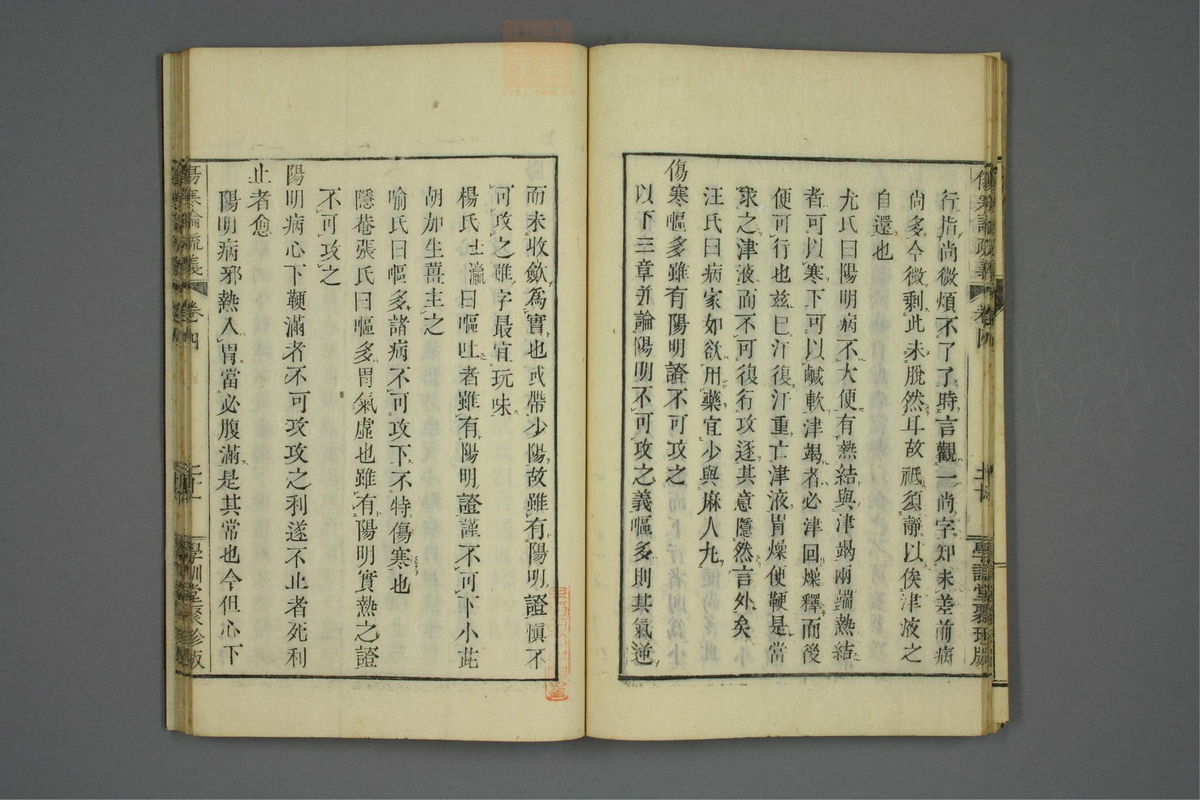 傷寒論疏義 卷四 學訓堂聚珍版
行指尚微煩不了了時言觀一尚字知未差前病
尚多今微剩此未脫然耳故祗須靜以俟津液之
自還也
尤氏曰陽明病不大便有熱結與津竭兩端熱結
者可以寒下可以鹹軟津竭者必津回燥釋而後
便可行也茲已汗復汗重亡津液胃燥便鞕是當
求之津液而不可復行攻逐其意隱然言外矣
汪氏曰病家如欲用藥宜少與麻人丸
傷寒嘔多雖有陽明證不可攻之
以下三章幷論陽明不可攻之義嘔多則其氣逆
而未收斂爲實也或帶少陽故雖有陽明證愼不
可攻之雖字最宜玩味
楊氏士瀛曰嘔吐者雖有陽明證謹不可下小茈
胡加生薑主之
喻氏曰嘔多諸病不可攻下不特傷寒也
隱菴張氏曰嘔多胃氣虛也雖有陽明實熱之證
不可攻之
陽明病心下鞕滿者不可攻攻之利遂不止者死利
止者愈
陽明病邪熱入胃當必腹滿是其常也今但心下
傷寒論疏義 卷四 學訓堂聚珍版